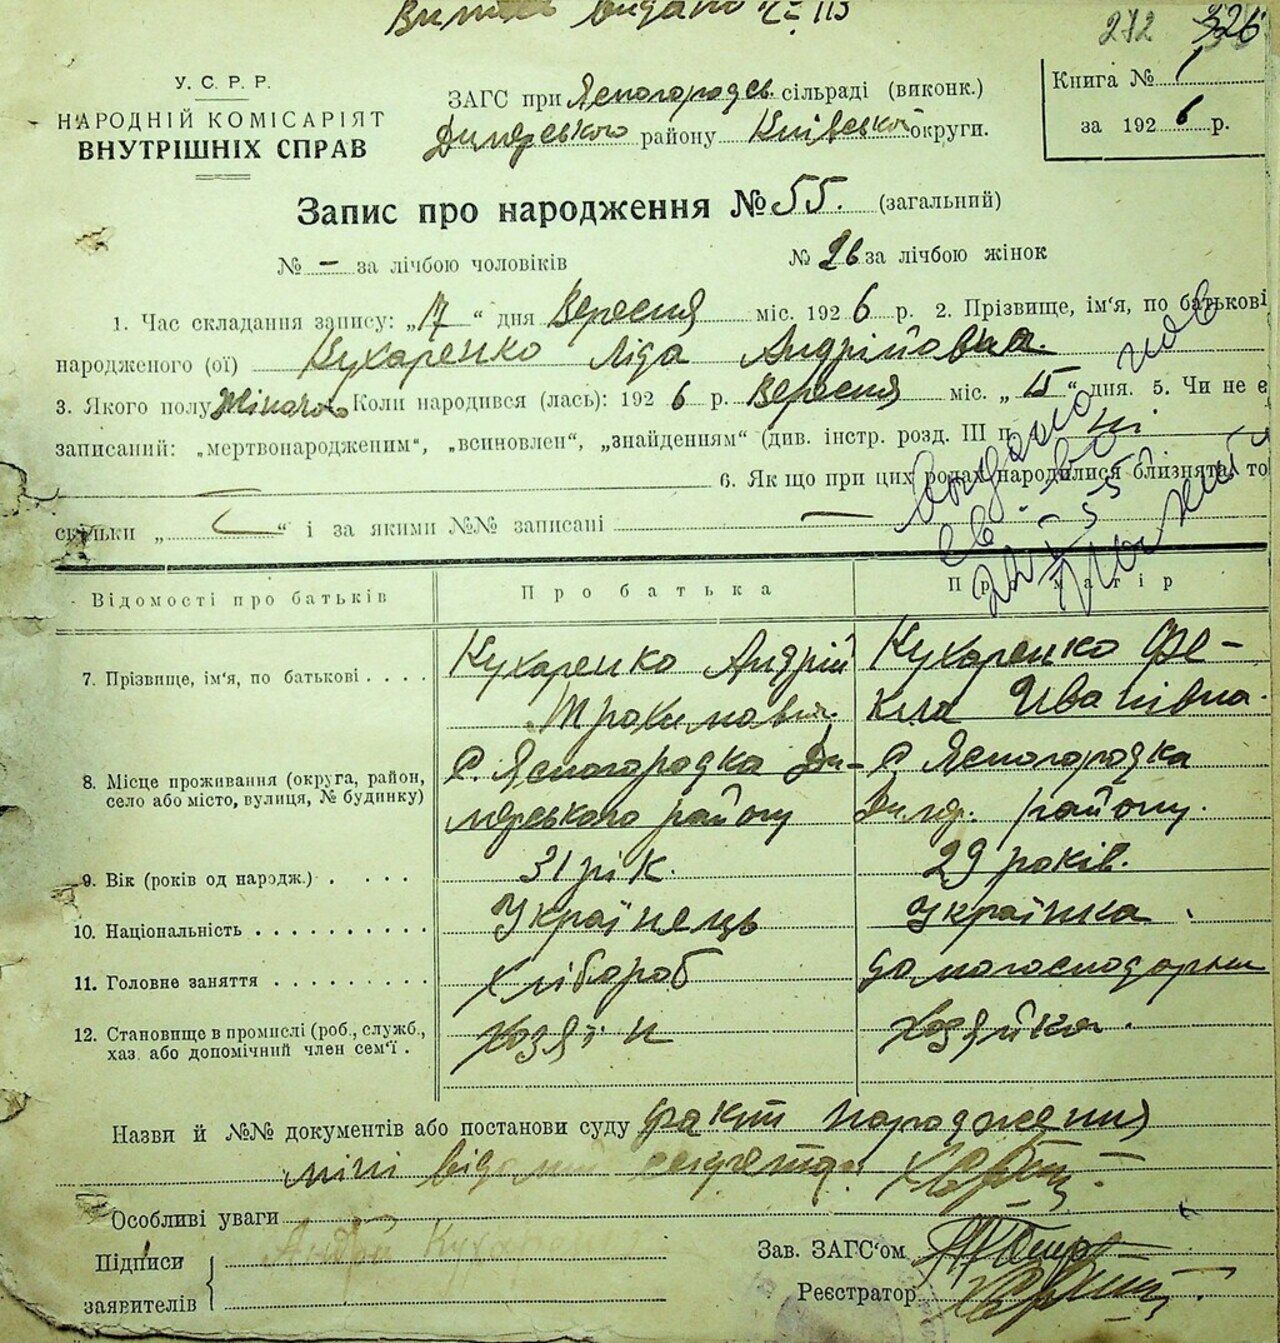 Витяг видано
272 326
У. С. Р. Р.
НАРОДНІЙ КОМІСАРІЯТ
ВНУТРІШНІХ СПРАВ
ЗАГС при Ясногородськ. сільраді (виконк.)
Димерського району Київської округи.
Книга № 1
за 1926 р.
Запис про народження № 55. (загальний)
№ — за лічбою чоловіків № 26 за лічбою жінок
1. Час складання запису: „17“ дня Вересня міс. 1926 р. 2. Прізвище, ім'я, по батькові
народженого (ої) Кухаренко Ліда Андрійовна.
3. Якого полу Жіночого Коли народився (лась): 1926 р. Вересня міс. „15“ дня. 5. Чи не є
записаний: „мертвонародженим“, „всиновлен“, „знайденням“ (див. інстр. розд. III п. ні
6. Як що при цих родах народилися близнята, то
скільки „ — “ і за якими №№ записані —
Відомості про батьків Про батька Про матір
7. Прізвище, ім'я, по батькові . . . . Кухаренко Андрій Кухаренко Фе-
Трохимович. кла Иванівна.
8. Місце проживання (округа, район, С. Ясногородка Ди- С. Ясногородка
село або місто, вулиця, № будинку) мерського району Димер. району.
9. Вік (років од народж.) . . . . . 31 рік. 29 років.
10. Національність . . . . . . . . . . Українець Українка
11. Головне заняття . . . . . . . . . Хлібороб домогосподарка
12. Становище в промислі (роб., служб., Хозяїн Хозяйка.
хаз. або допомічний член сем'ї .
Назви й №№ документів або постанови суду факт народження
мені відомий секретар
Особливі уваги
Підписи Андрій Кухаренко
заявителів
Зав. ЗАГС'ом
Реєстратор